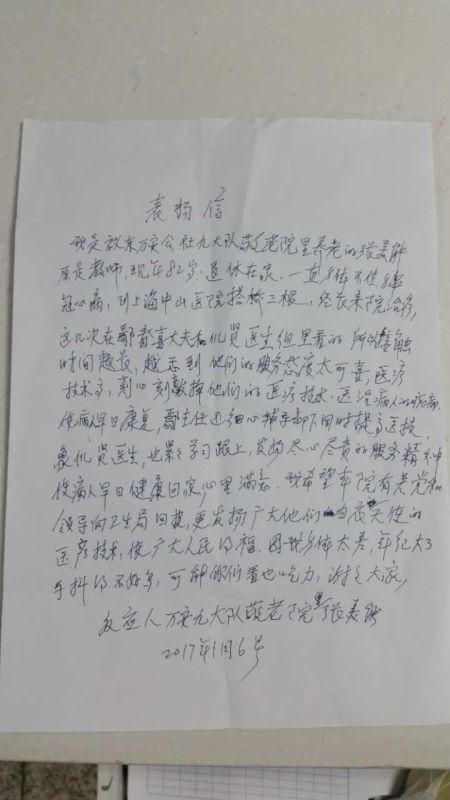 表扬信
我是启东万安公社九大队敬老院里养老的张美能
原是教师,现年82岁,退休在家.一直身体不佳,患
冠心病,到上海中山医院搭桥三根,经常来院治疗,
这几次在鄱喜大夫和仇贤医生组里看的,所以接触
时间越长,越感到他们的服务态度太可喜,医疗
技术高,刻心刻发挥他们的医疗技术.医治病人的疾病,
使病人早日康复,主任还细心辅导部下同时提高医技,
象仇贤医生,也累学习跟上,发扬尽心尽责的服务精神
使病人早日健康回家,心里满意.我希望本院有关党和
领导向卫生局回报,更发扬广大他们的白衣天使的
医疗技术,使广大人民得福.因我身体太差,年纪大了
手抖得不好写,可能你们看也吃力,谢谢大家,
反应人万安九大队敬老院里张美能
2017年1月6号